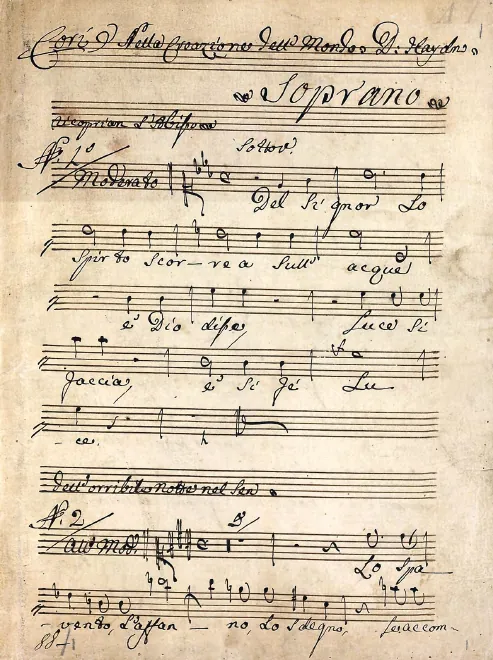 Cori Nella Creazione dell Mondo. D: Haydn.
Soprano
ricoprian l'Abisso
Nº. 1º
Sotto v.
Moderato
Del Si gnor Lo
Spirito Scor-re a Sull' acque
e' Dio disse, Luce Si
faccia, e' Si fé Lu
- ce.
dell'orribile notte nel Sen.
Nº. 2
All: Mod:
Lo Spa-
- vento, L'affan - no, Lo Sdegno, Seraccom-